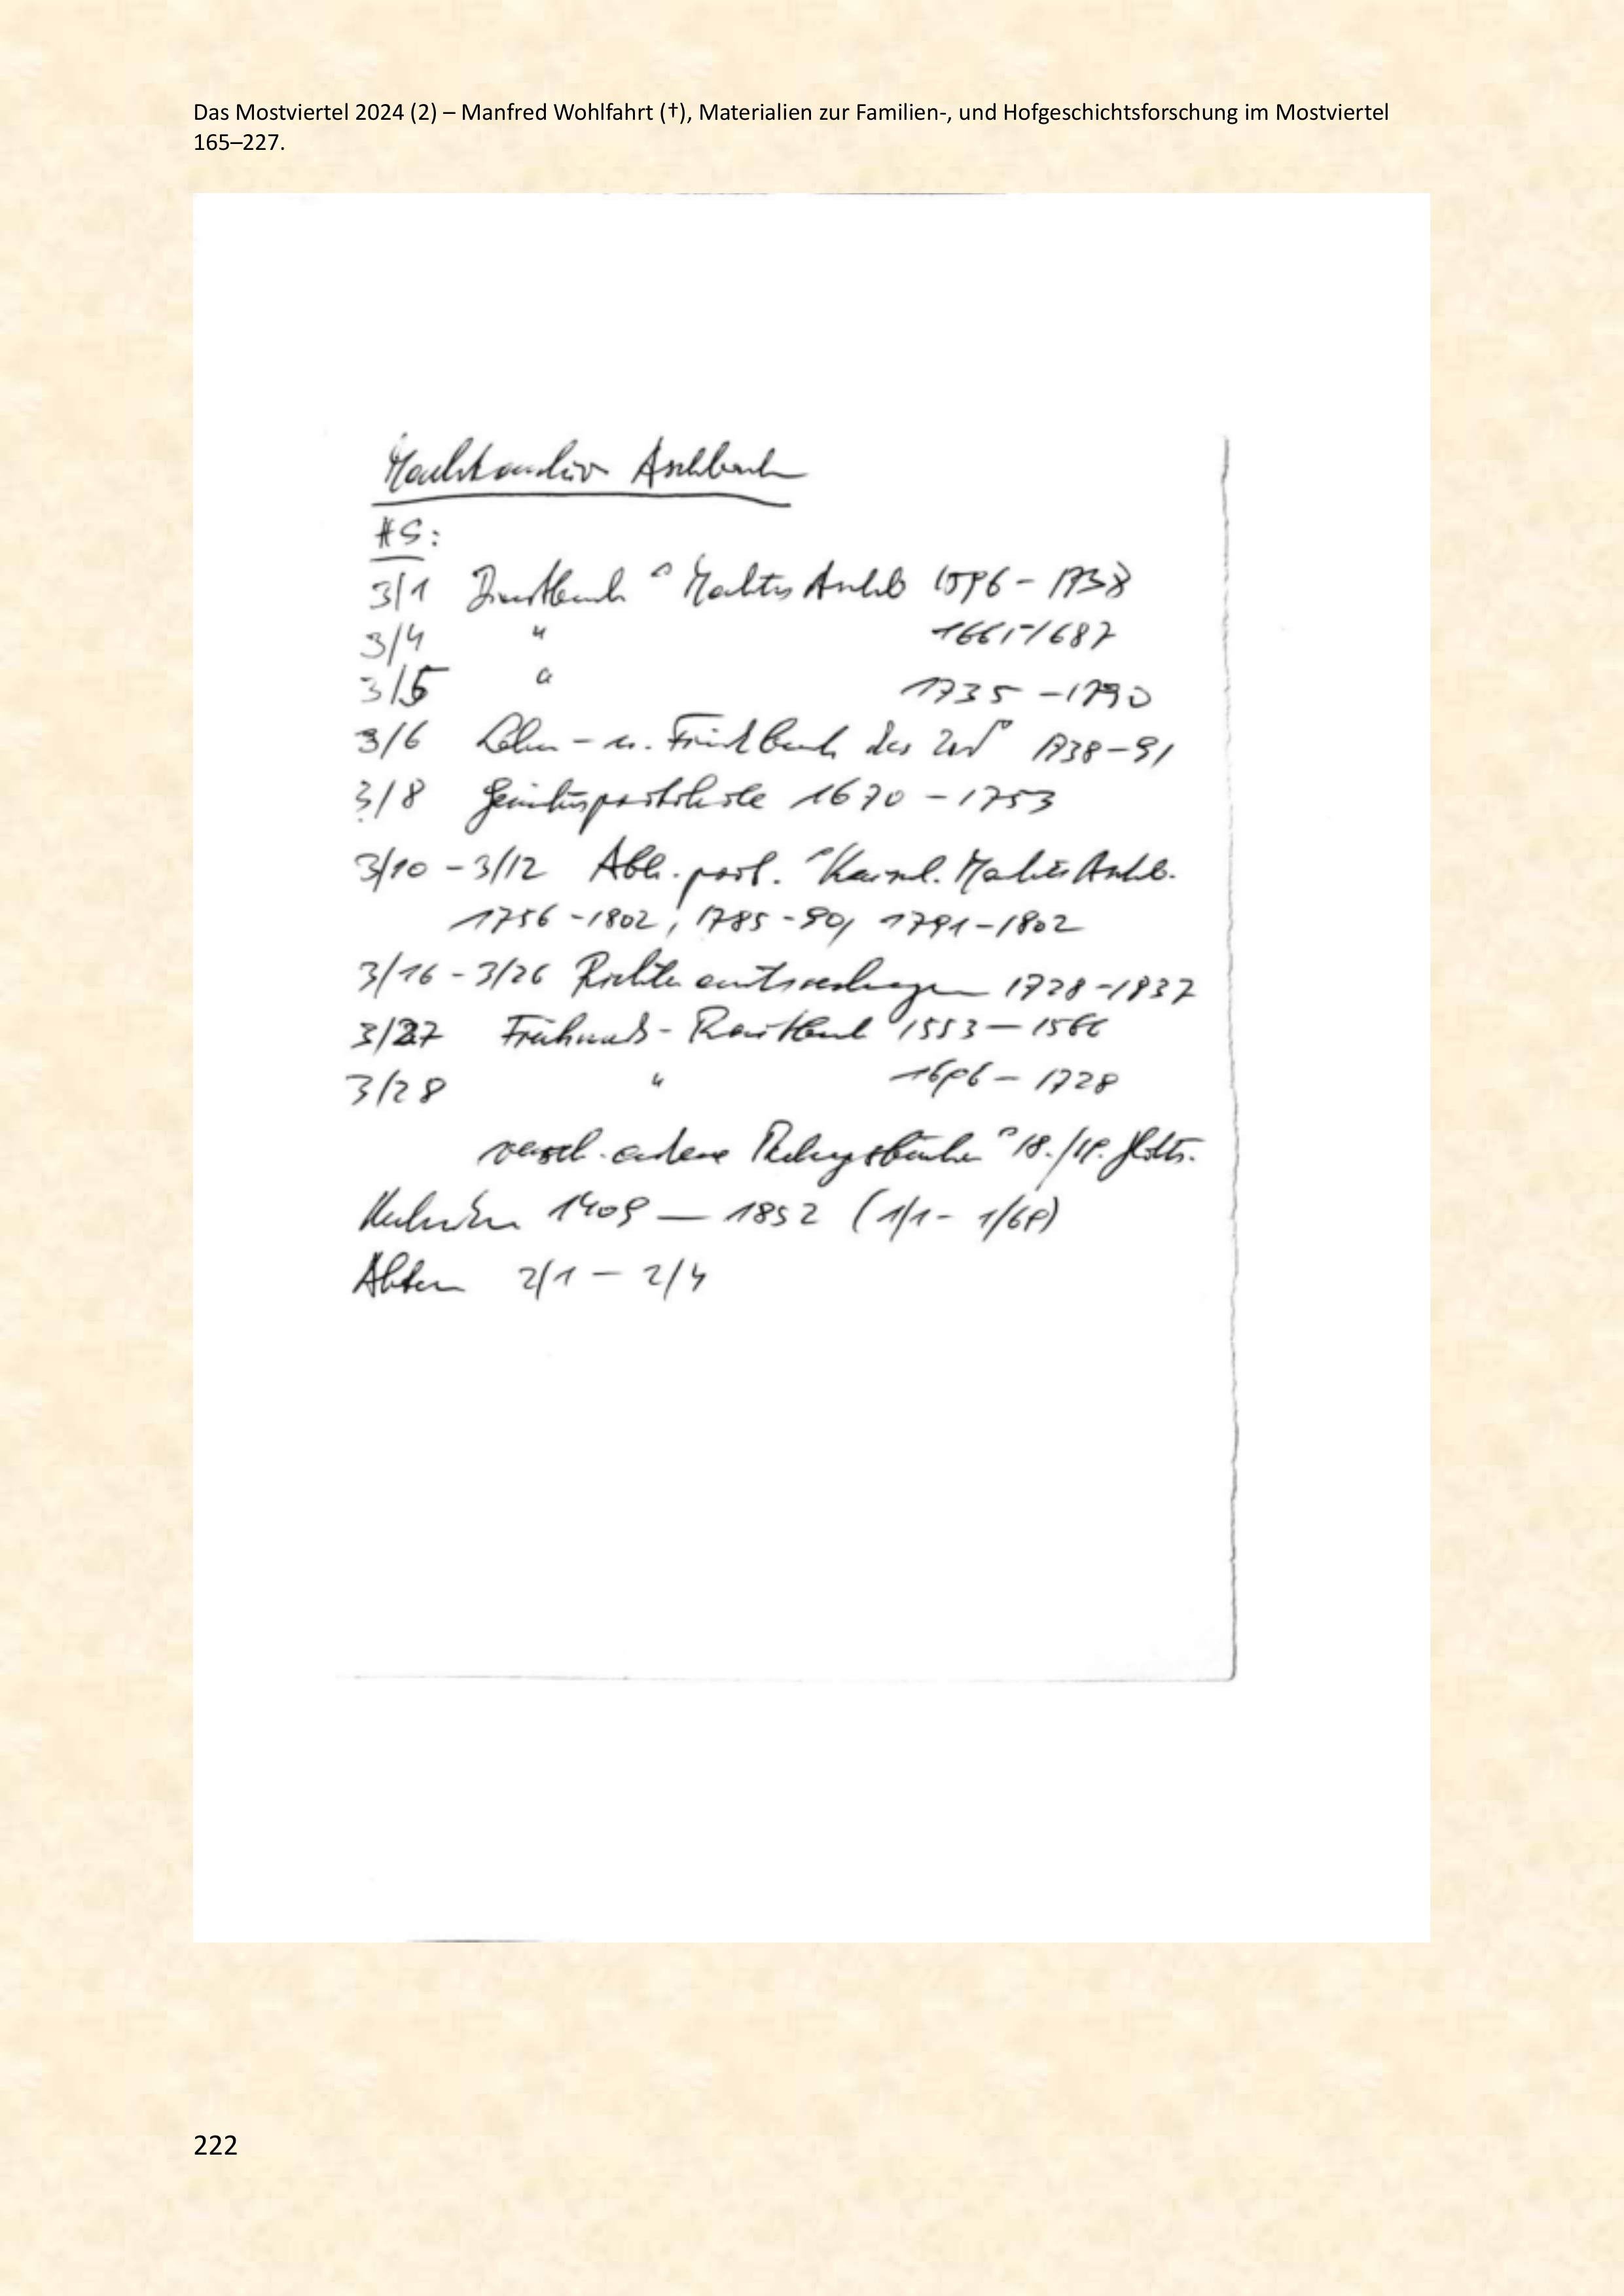 Das Mostviertel 2024 (2) – Manfred Wohlfahrt (†), Materialien zur Familien-, und Hofgeschichtsforschung im Mostviertel
165–227.
Marktarchiv Aschbach
HS:
3/1 Dienstbuch Marktes Aschb 1596 – 1738
3/4 " 1665-1687
3/5 " 1735 – 1790
3/6 Lehen- u. des 1738–91
3/8 Gerichtsprotokolle 1670 – 1753
3/10 – 3/12 Abh. prot. Marktes Aschb.
1756 – 1802, 1785 – 90, 1791 – 1802
3/16 – 3/26 Richteramtsrechnungen 1728 – 1837
3/27 Frühmeß- Raitbuch 1553 – 1566
3/28 " 1696 – 1728
versch. andere Rechnungsbücher 18./19. Jhdts.
Urkunden 1409 – 1852 (1/1 – 1/69)
Akten 2/1 – 2/4
222